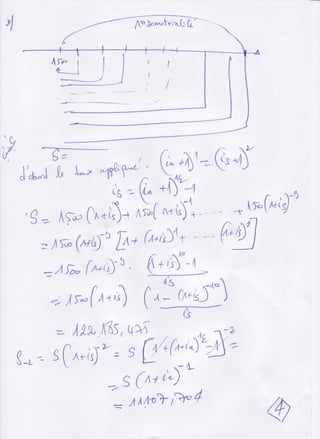 2/
10 semestrialité
1500
S =
d'abord le taux appliqué : (ia +1)^1 = (is +1)^2
is = (ia +1)^1/2 -1
S = 1500 (1+is)^0 + 1500 (1+is)^-1 + ..... + 1500 (1+is)^-9
= 1500 (1+is)^-9 [1 + (1+is)^1 + .... (1+is)^9]
= 1500 (1+is)^-9 . (1+is)^10 -1 / is
= 1500 (1+is) (1 - (1+is)^-10 / is)
S-2 = S (1+is)^-2 = S [1 + (1+ia)^1/2 -1]^-2 =
= S (1+ia)^-1
= 11107,704
4